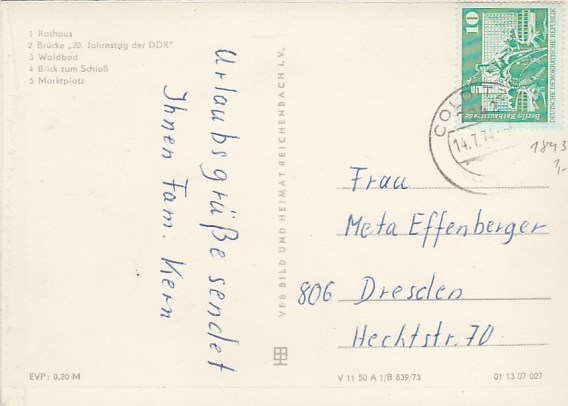 1 Rathaus
2 Brücke „20. Jahrestag der DDR"
3 Waldbad
4 Blick zum Schloß
5 Marktplatz
Urlaubsgrüße sendet
Ihnen Fam. Kern
EVP: 0,20 M
VEB BILD UND HEIMAT REICHENBACH I. V.
10
DEUTSCHE DEMOKRATISCHE REPUBLIK
Berlin Rathausstraße
COLD
14.7.74
1843
1,-
Frau
Meta Effenberger
806 Dresden
Hechtstr. 70
V 11 50 A 1/B 839/73
01 13 07 027